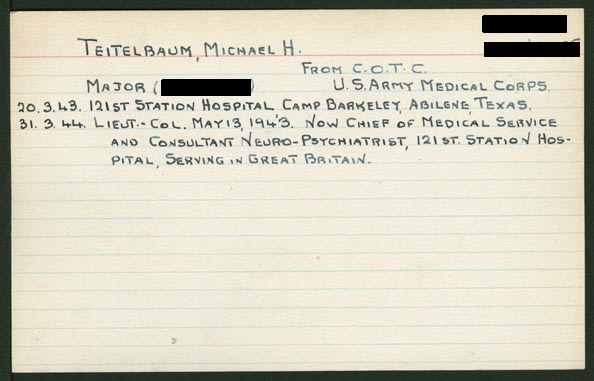 TEITELBAUM, MICHAEL H.
FROM C.O.T.C.
MAJOR ( ) U.S. ARMY MEDICAL CORPS.
20.3.43. 121ST STATION HOSPITAL, CAMP BARKELEY, ABILENE, TEXAS.
31.3.44. LIEUT.-COL. MAY 13, 1943. NOW CHIEF OF MEDICAL SERVICE
AND CONSULTANT NEURO-PSYCHIATRIST, 121 ST. STATION HOS-
PITAL, SERVING IN GREAT BRITAIN.